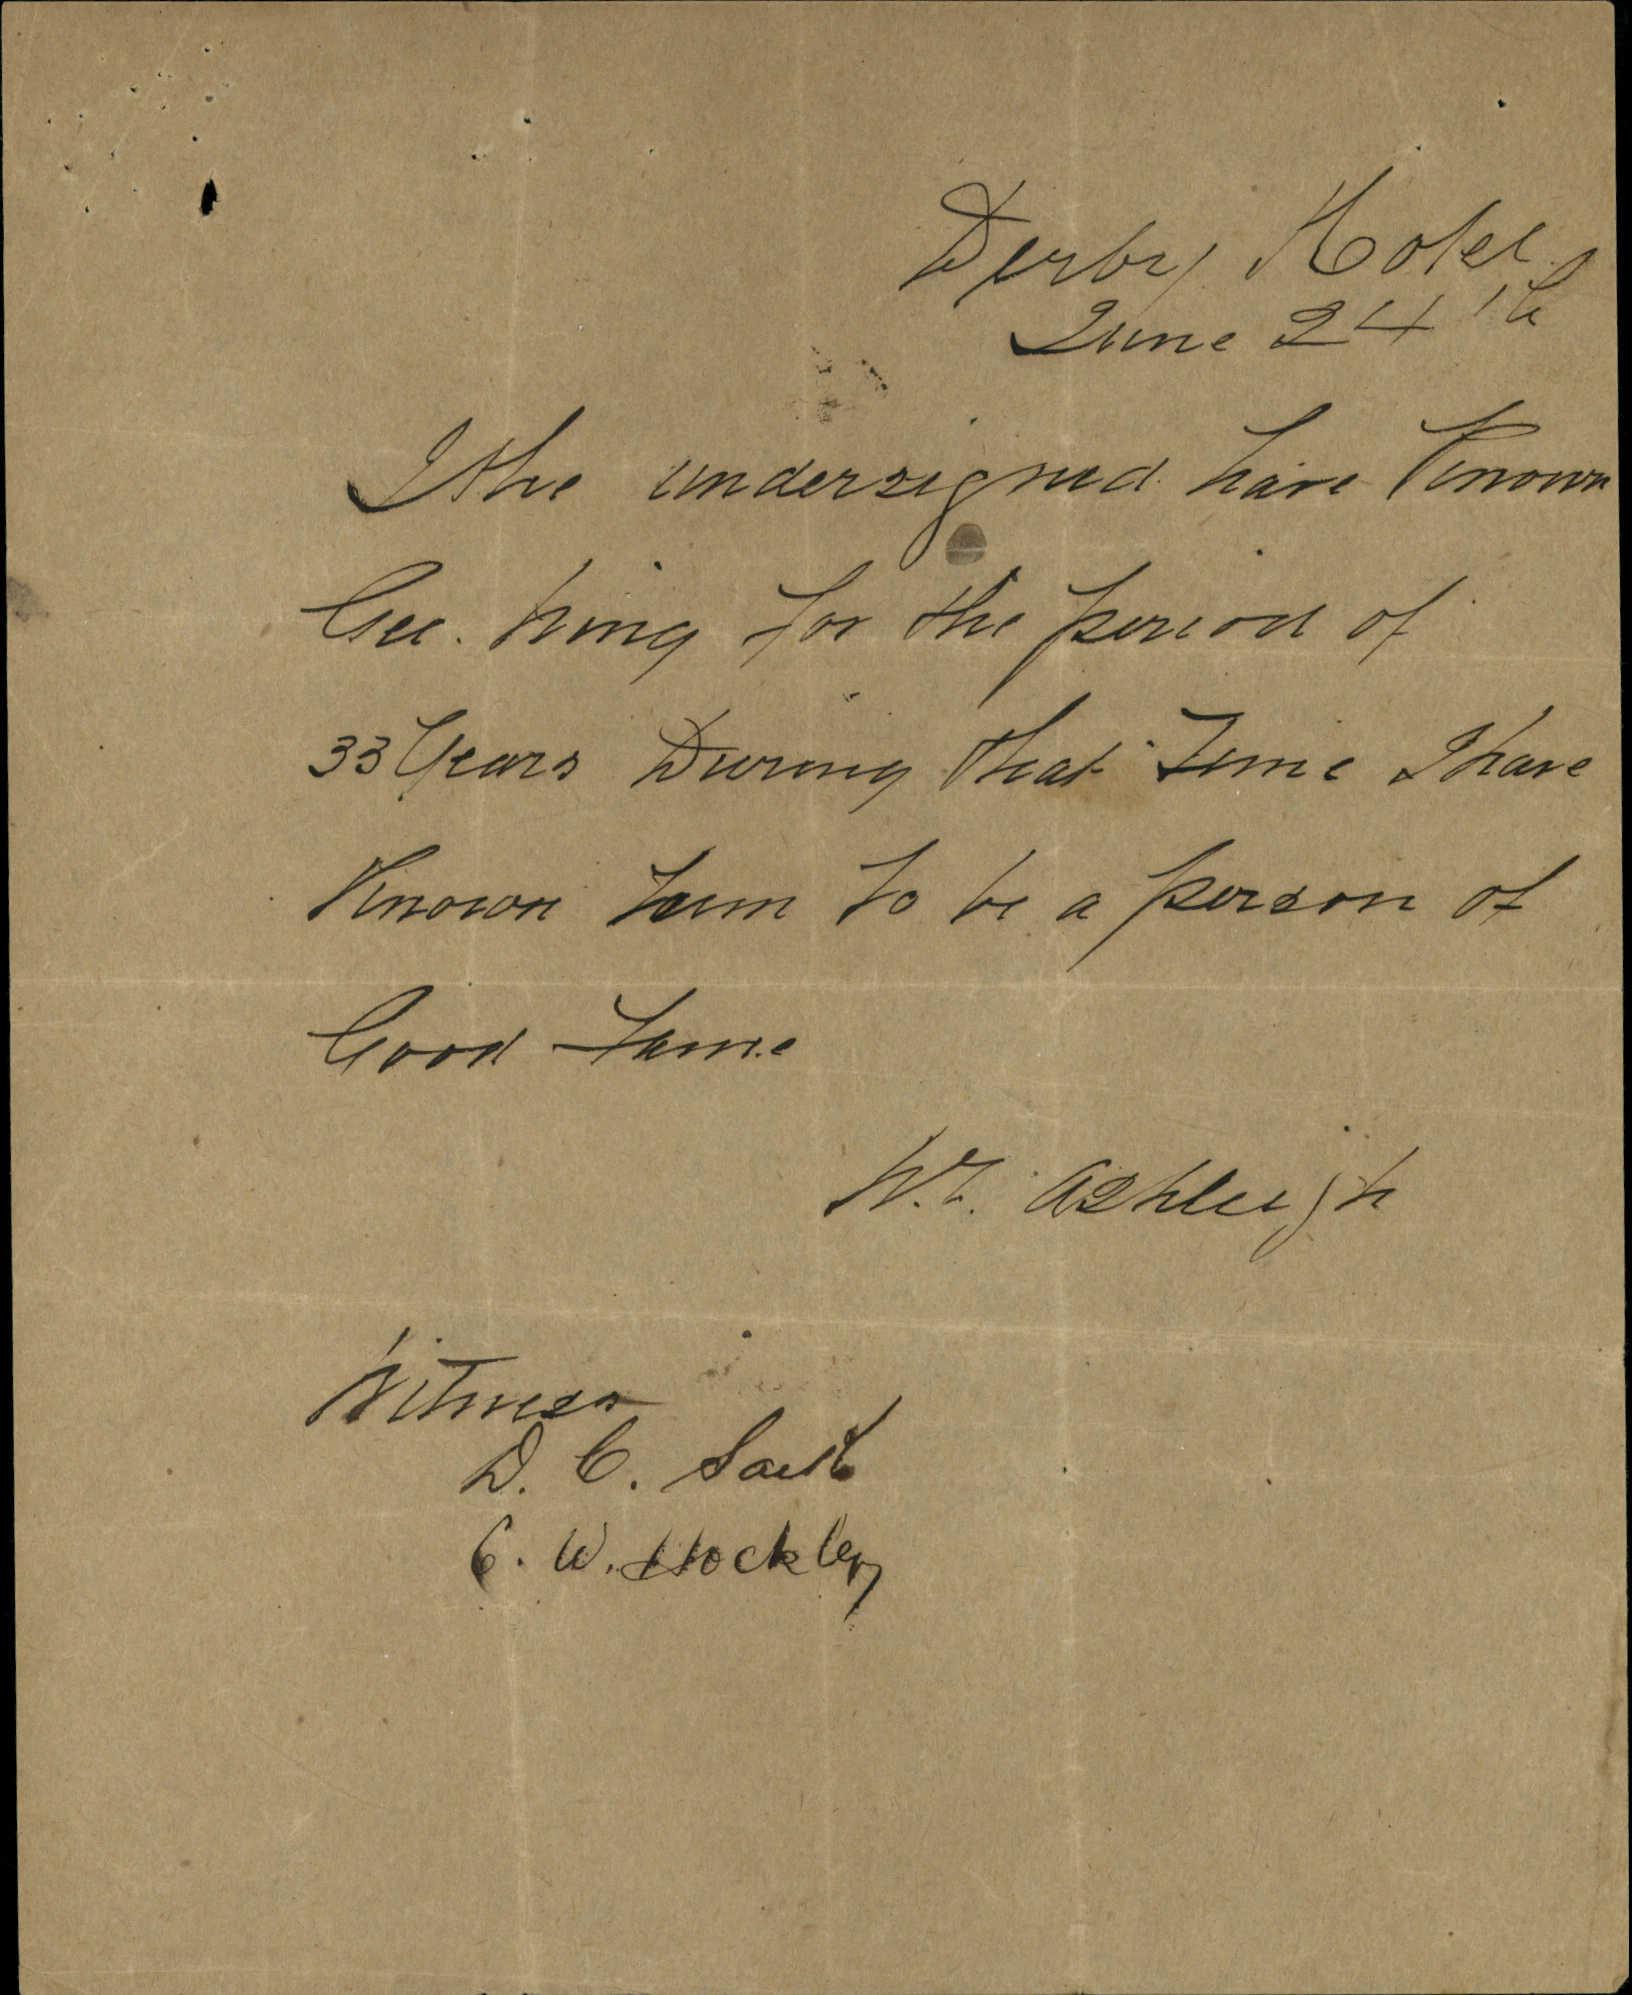 Derby Hotel
June 24th
I the undersigned have known
Gee. Wing for the period of
33 Years During that Time I have
Known him to be a person of
Good Fame
W.T. Ashleigh
Witness
D. C.
C. W. Hockley